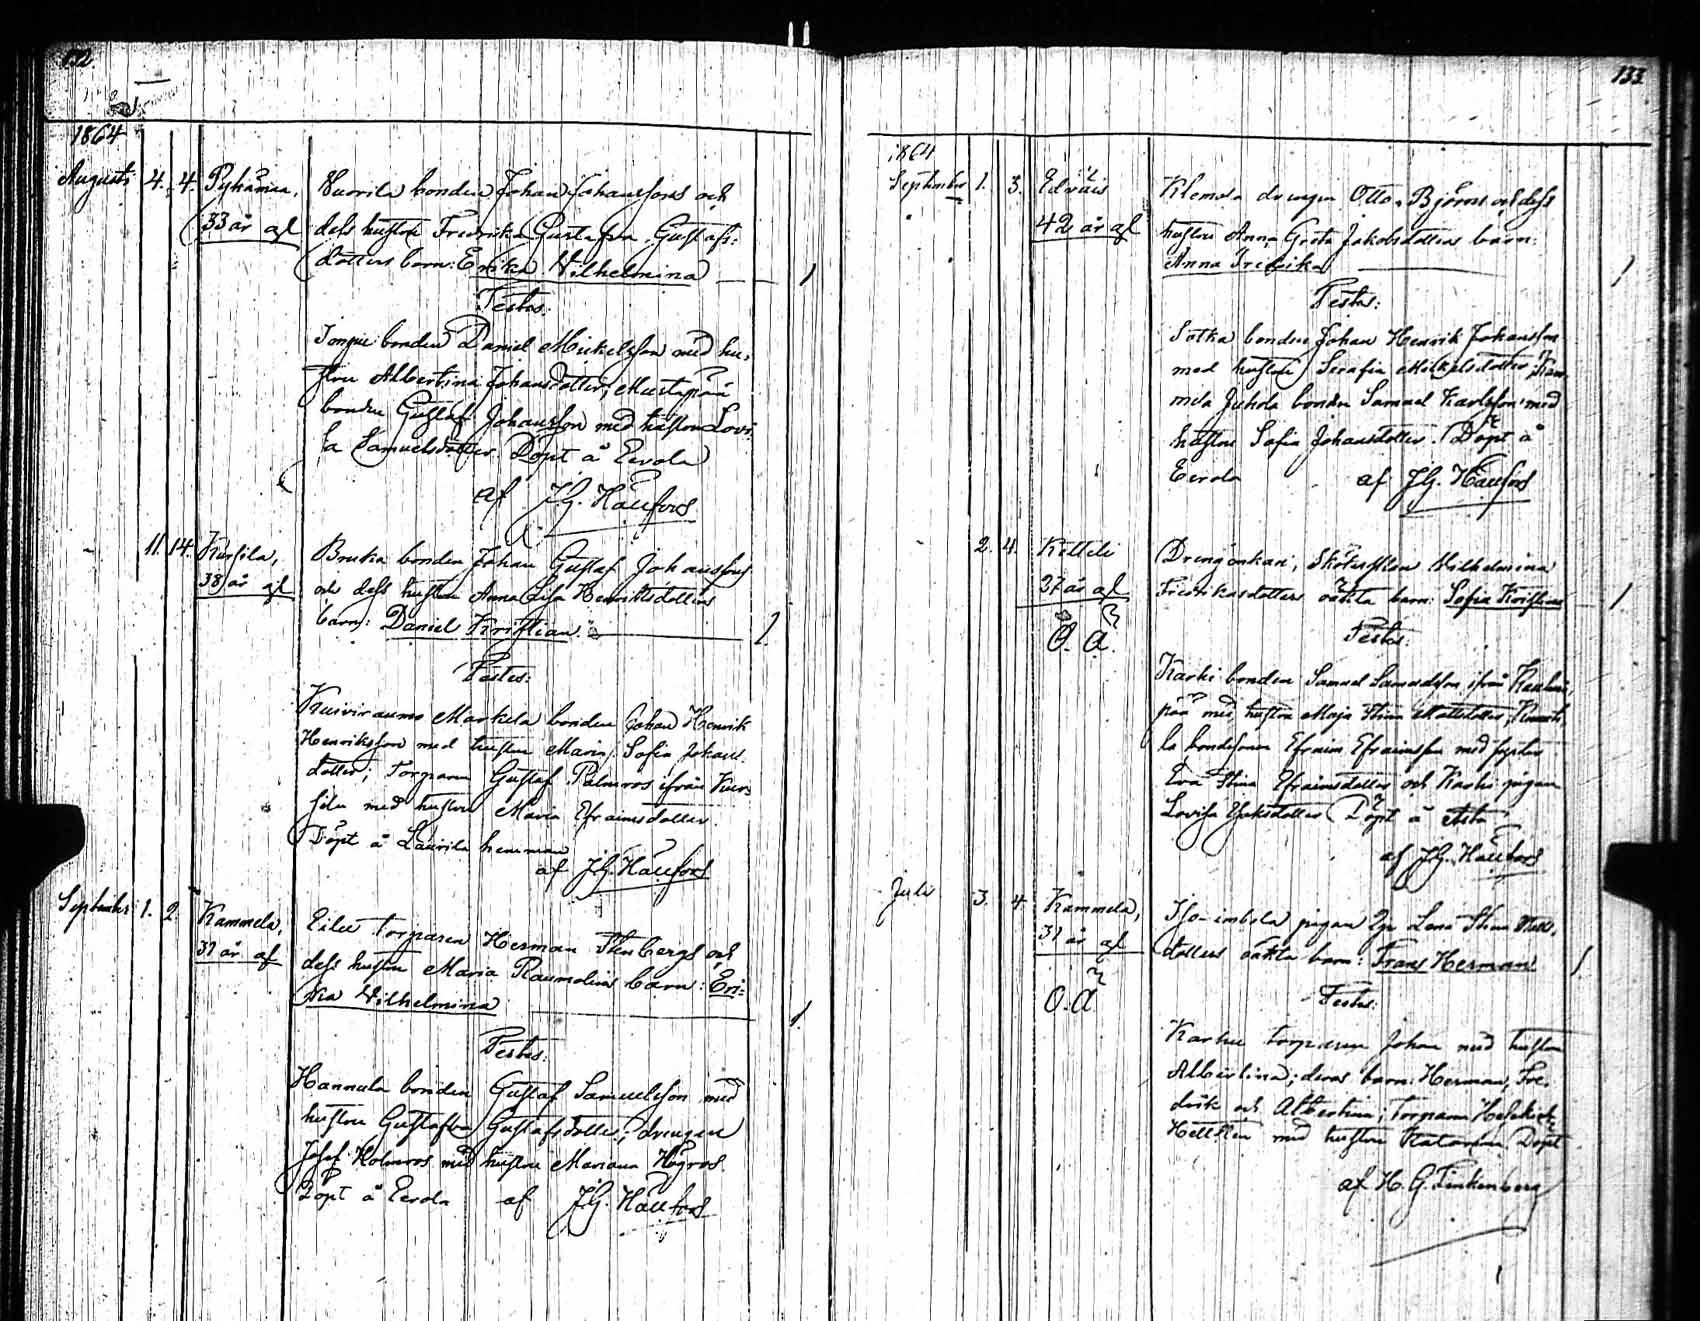 132
1864
Augusti 4. 4. Pyhäraa,
33 år gl
Vuorila bonden Johan Johanssons och
dess hustru Fredrika Gustafva Gustafs-
dotters barn: Erika Wilhelmina
Testes:
bonden Daniel Mickelsson med hu-
stru Albertina Johansdotter, Mustapää
bonden Gustaf Johansson med hustru Lovi-
sa Samuelsdotter. Döpt å Eerola
af J.G. Hällfors
11. 14. Kursila,
38 år gl
Bruka bonden Johan Gustaf Johanssons
och dess hustru Anna Lisa Henriksdotters
barn: Daniel Kristian
Testes:
Kuiviraumo Markela bonden Johan Henrik
Henriksson med hustru Maria Sofia Johans-
dotter, Torparen Gustaf Palmros ifrån Kur-
sila med hustru Maria Efraimsdotter.
Döpt å Laurila hemman
af J.G. Hällfors
September 1. 2. Kammela,
31 år gl
torparen Herman Stenbergs och
dess hustru Maria Raumolins barn: Eri-
ka Wilhelmina
Testes:
Hannula bonden Gustaf Samuelsson med
hustru Gustafva Gustafsdotter, drengen
Josef Holmros med hustru Mariana Högros.
Döpt å Eerola af J.G. Hällfors
133
1864
September 1. 3. Edväis
42 år gl
Klemola drengen Otto Björros och dess
hustru Anna Greta Jakobsdotters barn:
Anna Fredrika
Testes:
Sotka bonden Johan Henrik Johansson
med hustru Serafia Mickelsdotter, Kam-
mela Juhola bonden Samuel Karlsson med
hustru Sofia Johansdotter. Döpt å
Eerola af J.G. Hällfors
2. 4. Ketteli
27 år gl
O. Ä.
Drengönkan, Sköterskan Wilhelmina
Fredrikasdotters oäkta barn: Sofia Kristina
Testes:
Karhi bonden Samuel Samuelsson ifrån
pää med hustru Maja Stina Mattsdotter,
la bondesonen Efraim Efraimsson med syster
Eva Stina Efraimsdotter och Karhi pigan
Lovisa Isaksdotter Döpt å
af J.G. Hällfors
Juli 3. 4. Kammela,
31 år gl
O. Ä.
Iso-imbola pigan Lena Stina Matts-
dotters oäkta barn: Frans Herman
Testes:
Karhu torparen Johan med hustru
Albertina; deras barn: Herman, Fre-
drik och Albertina; Torparen
Hellsten med hustru Katarina. Döpt
af H. G. Finkenberg